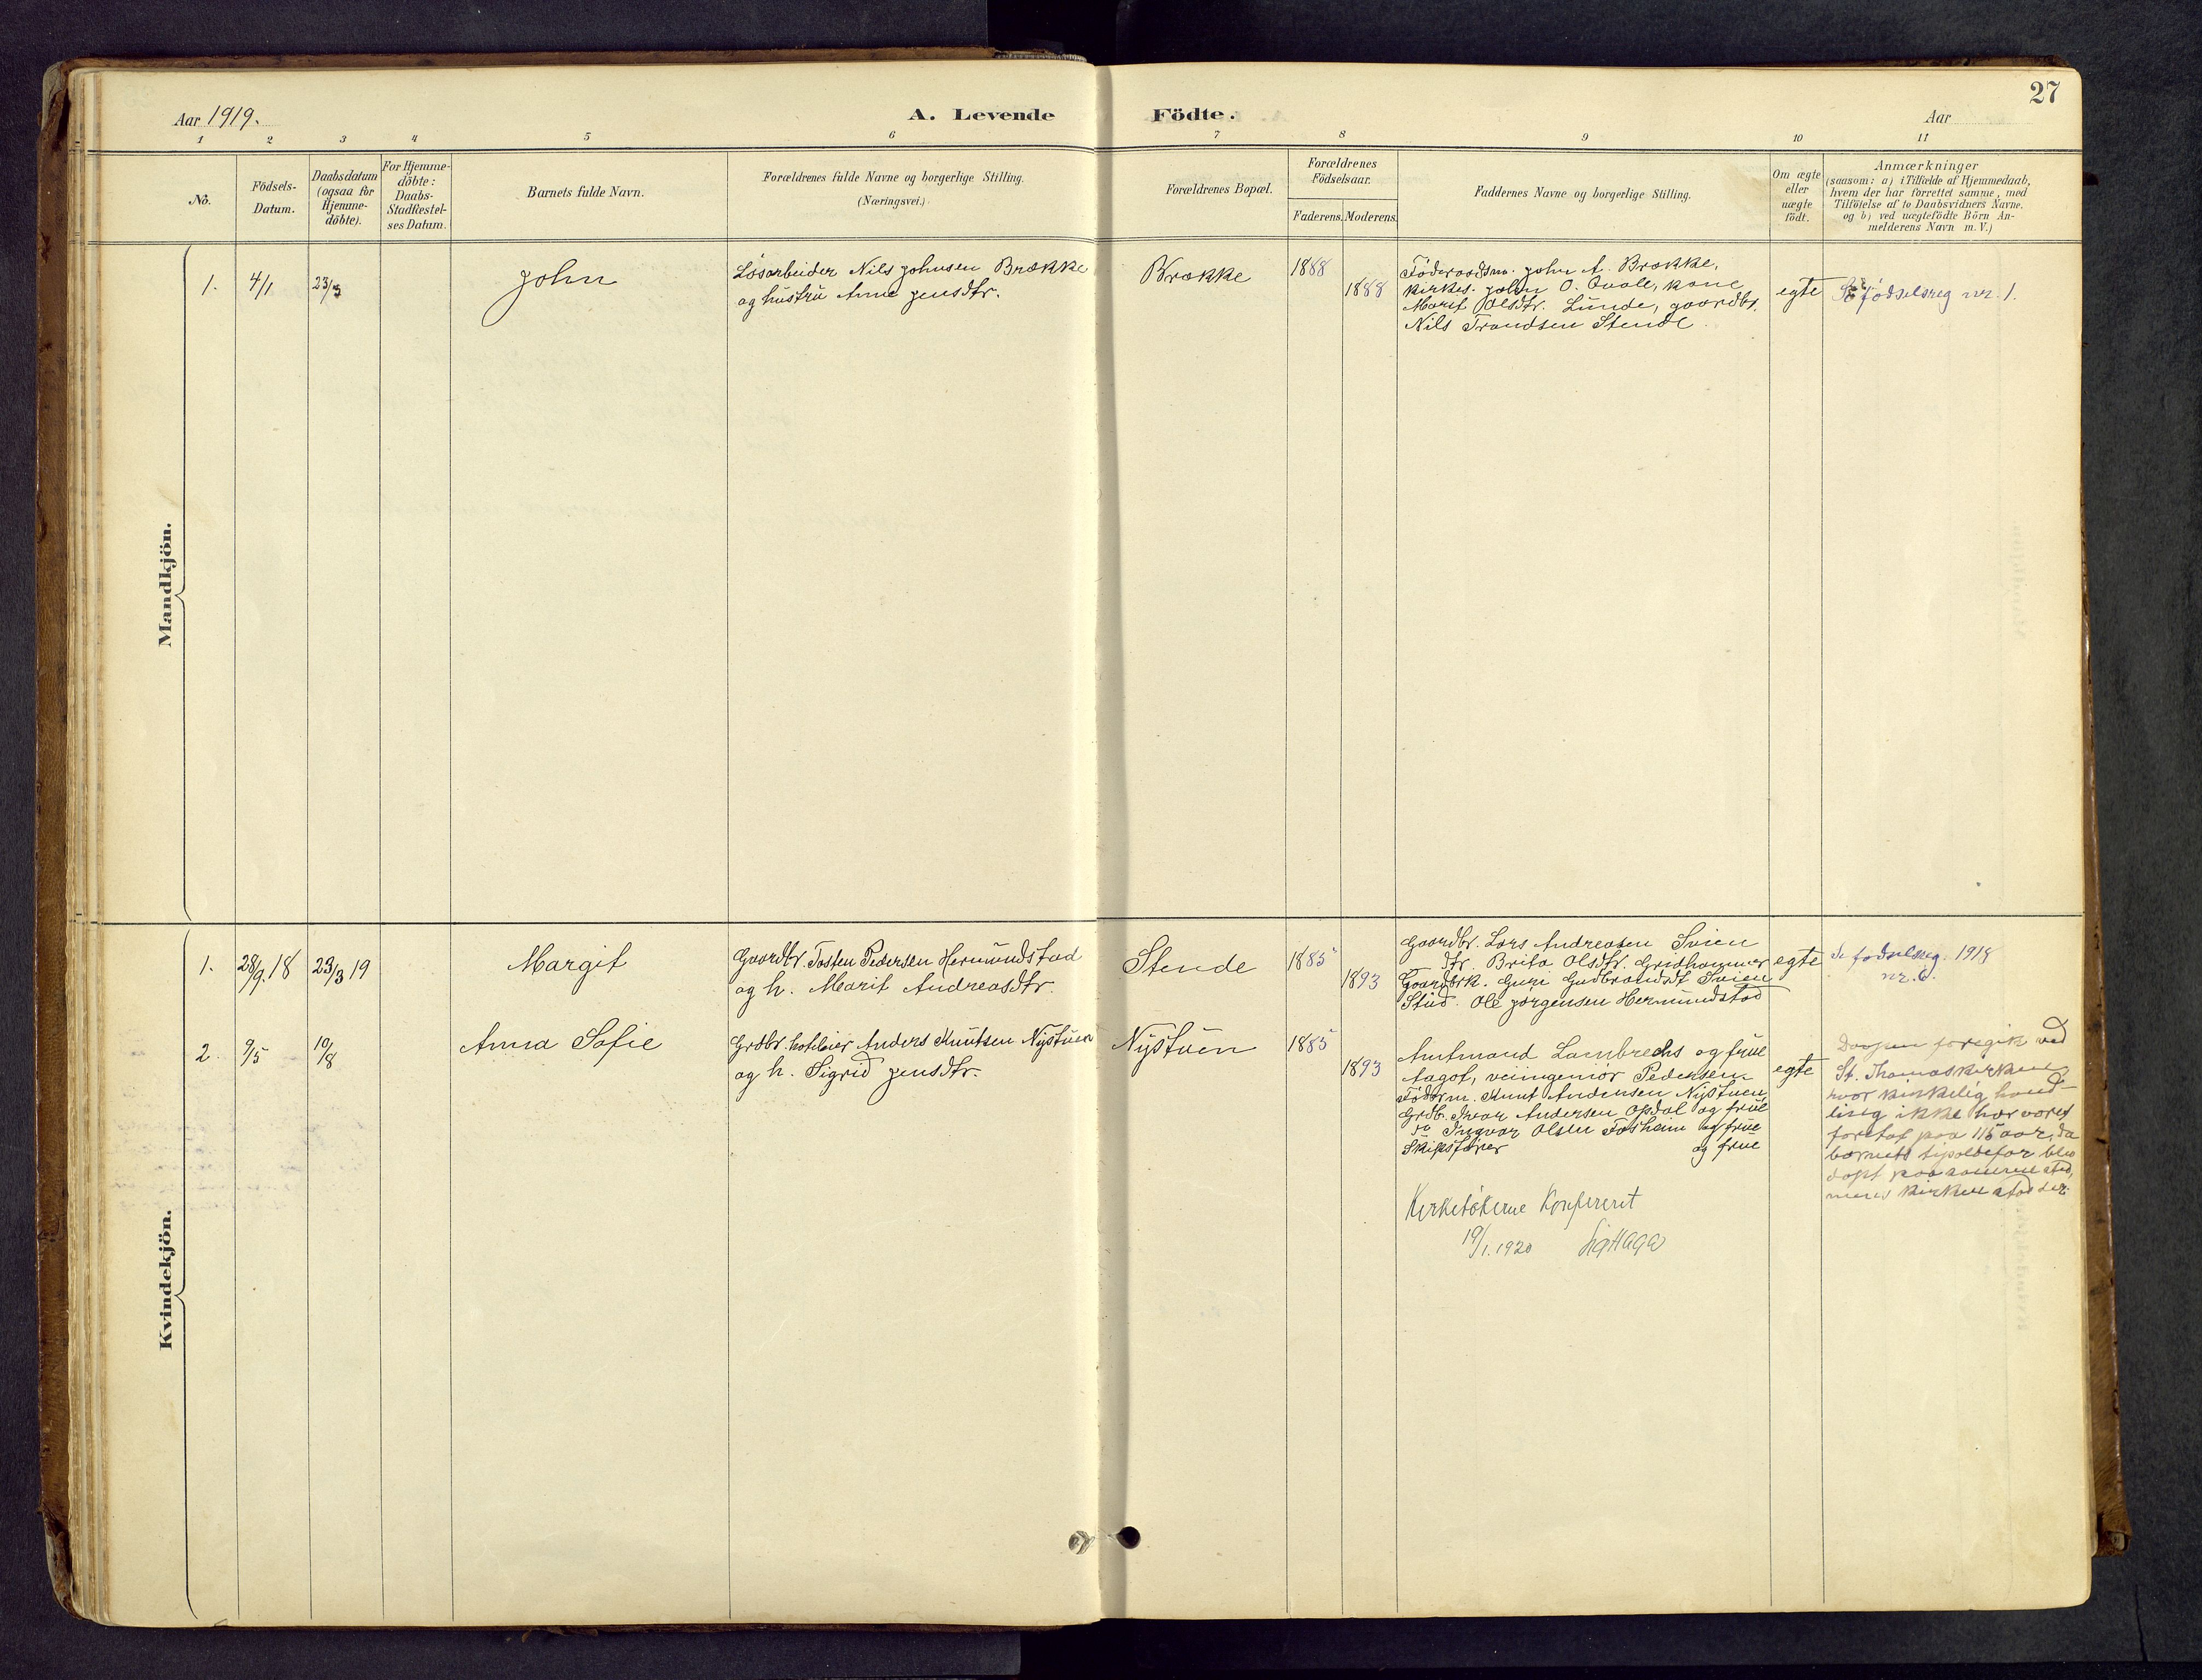 27
Aar 1919.
A. Levende Födte.
Aar
1 2 3 4 5 6 7 8 9 10 11
No.
Födsels-
Datum.
Daabsdatum
(ogsaa for
Hjemme-
döbte).
For Hjemme-
döbte:
Daabs-
Stadfæstel-
ses Datum.
Barnets fulde Navn.
Forældrenes fulde Navne og borgerlige Stilling.
(Næringsvei.)
Forældrenes Bopæl.
Forældrenes
Födselsaar.
Faderens. Moderens.
Faddernes Navne og borgerlige Stilling.
Om ægte
eller
uægte
födt.
Anmærkninger
(saasom: a) i Tilfælde af Hjemmedaab,
hvem der har forrettet samme, med
Tilföielse af to Daabsvidners Navne.
og b) ved uægtefödte Börn An-
melderens Navn m. V.)
Mandkjön.
1.
4/1
23/3
John
Løsarbeider Nils Johnsen Brække
og hustru Anne Jensdtr.
Brække
1888
1888
Føderaadsm. John A. Brække,
Kirkes. John O. Qvale, kone
Marit Olsdtr. Lunde, gaardbr.
Nils Trondsen Stende.
egte
Se fødselsreg nr. 1.
Kvindekjön.
1.
28/9.18
23/3 19
Margit
Gaardbr. Tosten Pedersen Hermundstad
og h. Marit Andreasdtr.
Stende
1885
1893
Gaardbr. Lars Andreasen Svien
dtr. Brita Olsdtr. Gridhammer
Gaardbrk. Guri Gudbrandsdt Svien
Stud. Ole Jørgensen Hermundstad
egte
se fødselsreg. 1918
nr. 6.
2.
9/5
10/8
Anna Sofie
Grdbr. hoteleier Anders Knutsen Nystuen
og h. Sigrid Jensdtr.
Nystuen
1885
1893
Amtmand Lambrechs og frue
Aagot, veiingeniør Pedersen
Føderm. Knut Andersen Nystuen
Grdb. Ivar Andersen Opdal og frue
Ingvar Olsen Fosheim og frue
Skipsfører og frue
egte
Daapen foregik ved
St. Thomaskirken
hvor kirkelig hand-
ling ikke har været
foretat paa 115 aar, da
barnets tipoldefar blev
døpt paa samme sted,
mens kirken stod der.
Kirkebøkerne Konfereret
19/1. 1920